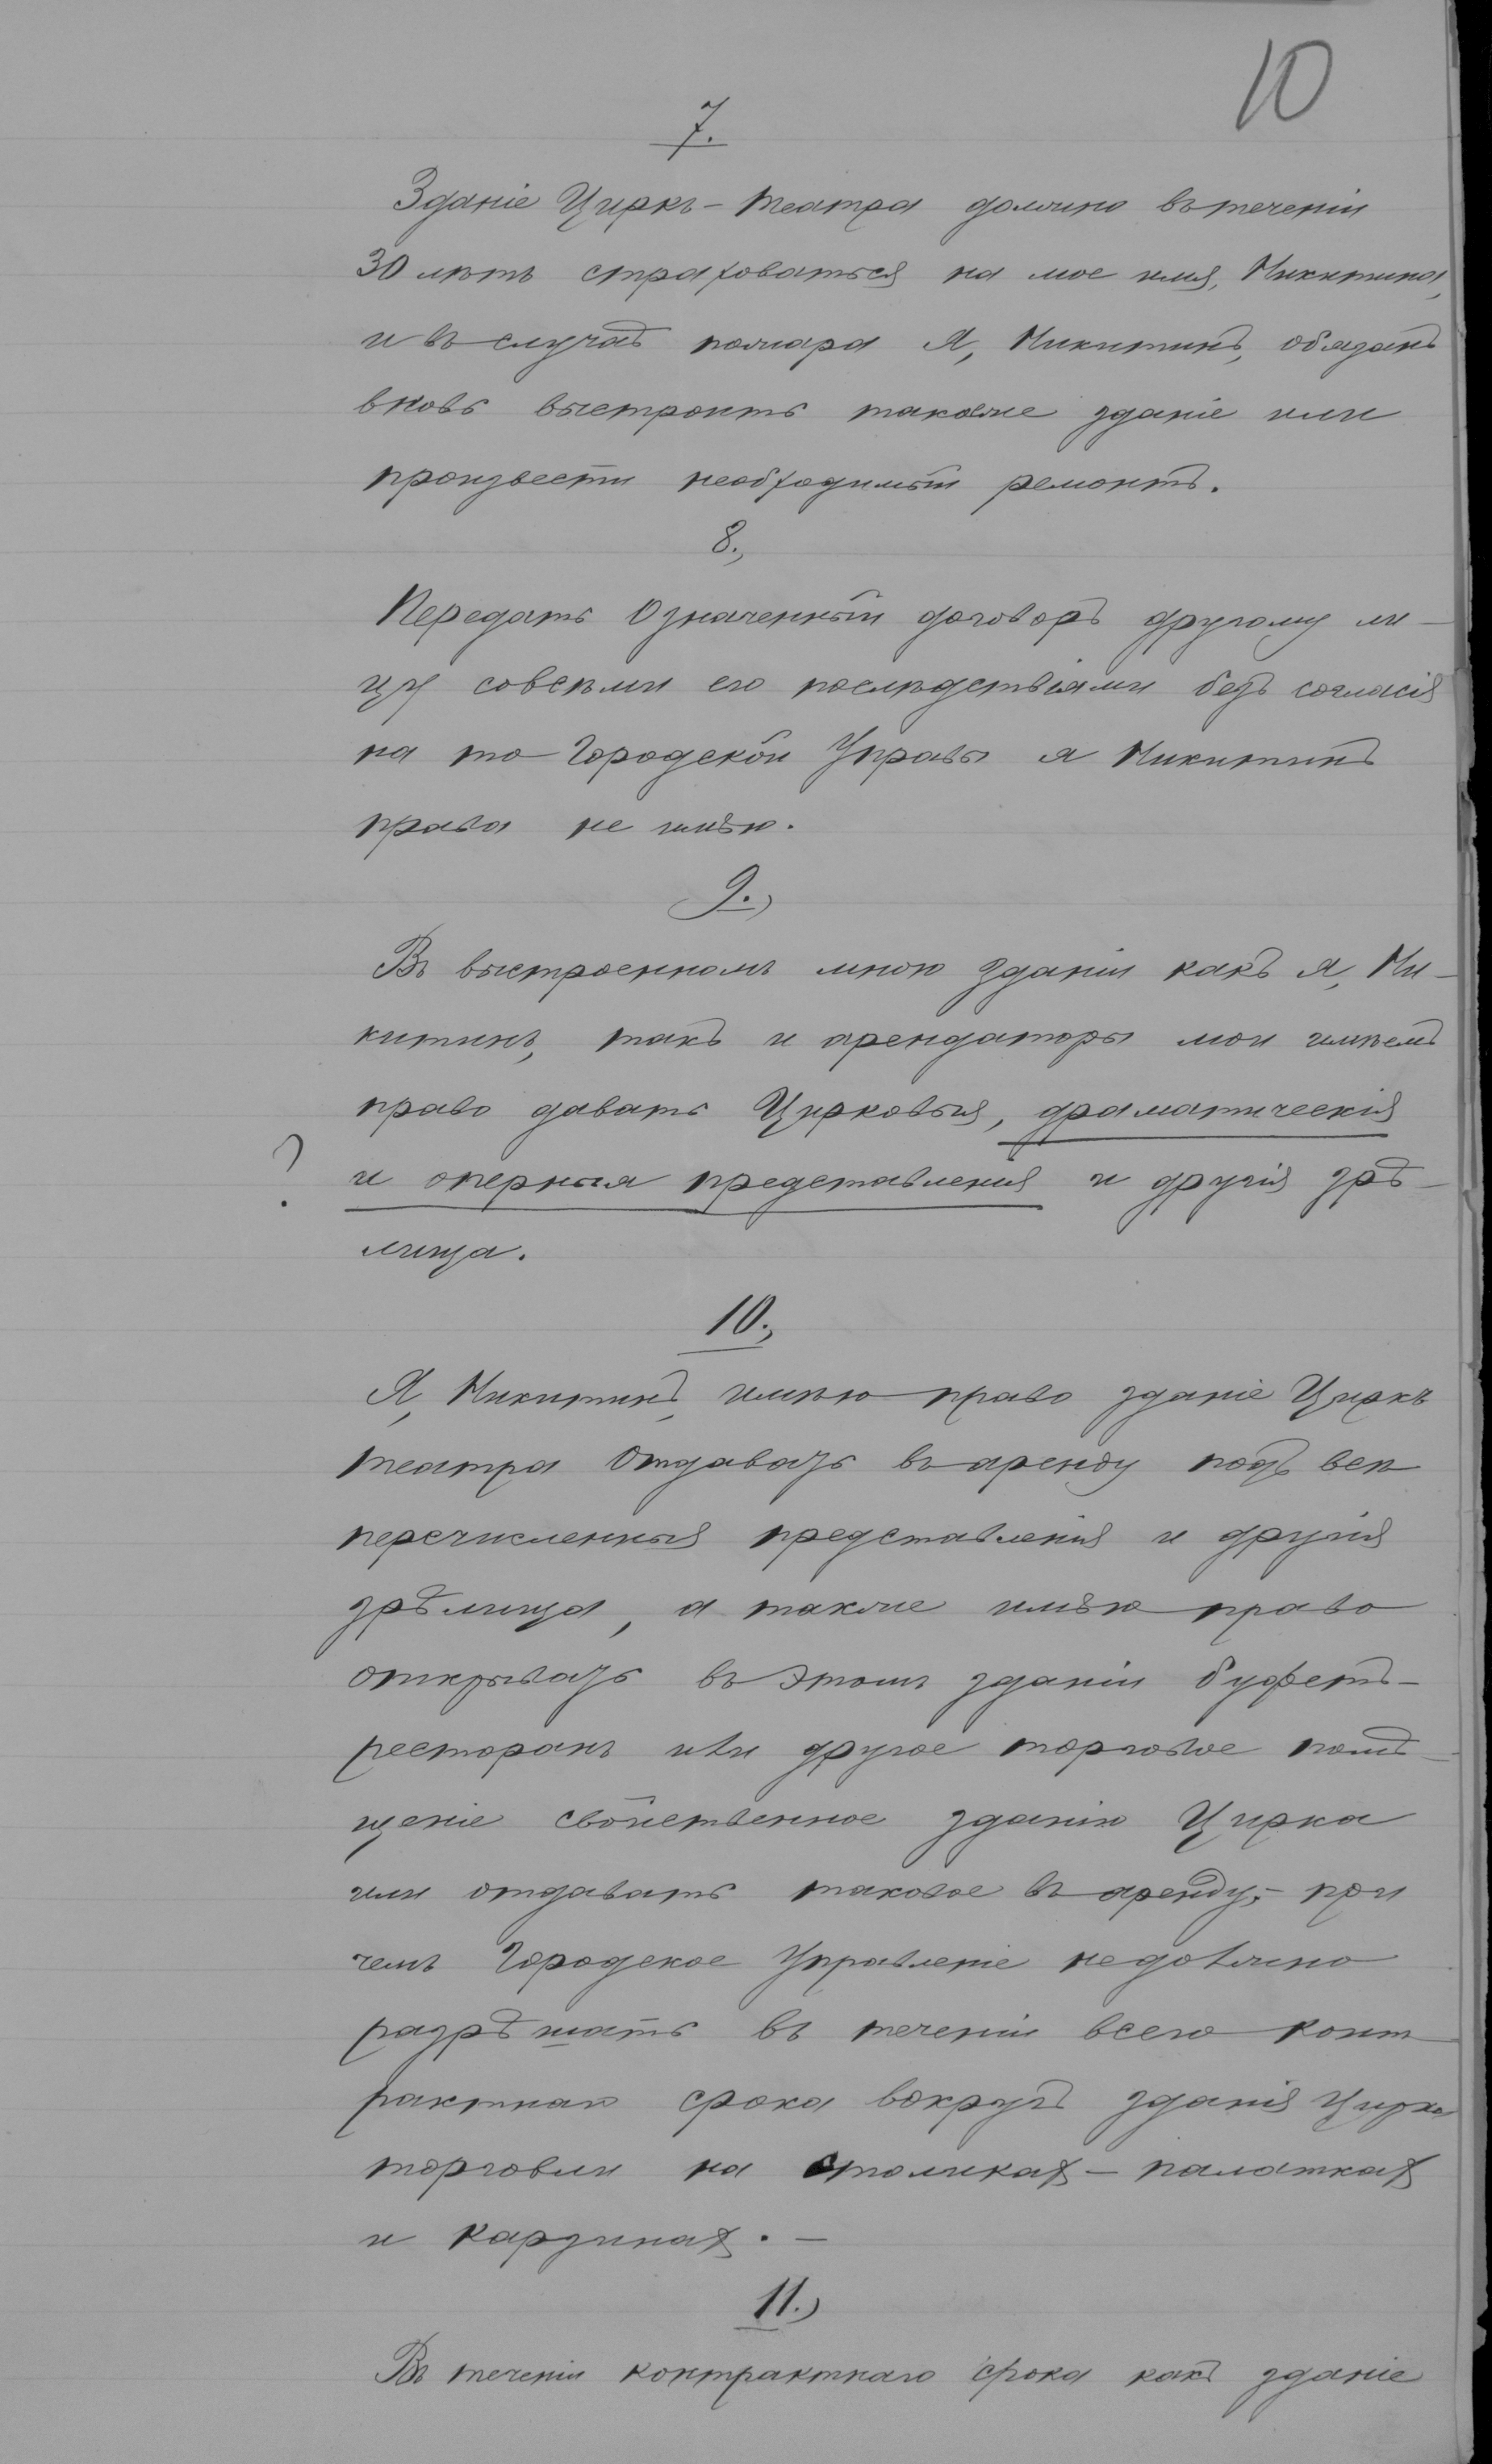 10
7.
Зданіе Циркъ-театра должно въ теченіи
30 лѣтъ страховаться на мое имя, Никитина,
и въ случаѣ пожара я, Никитинъ, обязанъ
вновь выстроить таковое зданіе или
произвести необходимый ремонтъ.
8.,
Передать означенный договоръ другому ли-
цу совсѣми его послѣдствіями безъ согласія
на то Городской Управы я Никитинъ
права не имѣю.
9.,
Въ выстроенномъ мною зданіи какъ я, Ни-
китинъ, такъ и арендаторы мои имѣемъ
право давать Цирковыя, драматическія
? и оперныя представленія и другія зрѣ-
лища.
10.,
Я, Никитинъ, имѣю право зданіе Циркъ
театра отдавать въ аренду подъ всѣ
перечисленныя представленія и другія
зрѣлища, а также имѣю право
открывать въ этомъ зданіи буфетъ-
ресторанъ или другое торговое помѣ-
щеніе свойственное зданію Цирка
или отдавать таковое въ аренду,- при
чемъ Городское Управленіе недолжно
разрѣшать въ теченіи всего конт-
рактнаго срока вокругъ зданія Цирка
торговли на столикахъ - палаткахъ
и карзинахъ. -
11.,
Въ теченіи контрактнаго срока какъ зданіе